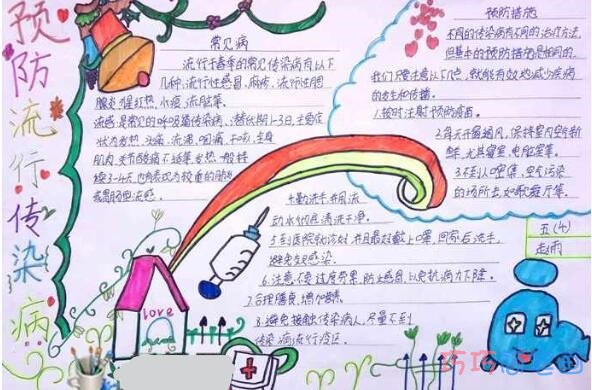 预防流行传染病
常见病
流行于春季的常见传染病有以下
几种：流行性感冒、麻疹、流行性腮
腺炎、猩红热、水痘、流脑等。
流感是常见的呼吸道传染病，潜伏期1-3日，主要症
状为发热、头痛、流涕、咽痛、干咳，全身
肌肉、关节酸痛不适等，发热一般持
续3-4天，也有表现为较重的肺炎
或胃肠型流感。
预防措施
不同的传染病有不同的治疗方法，
但基本的预防措施是相同的，
我们只要注意以下几点，就能有效地减少疾病
的发生和传播。
1.按时注射预防疫苗。
2.每天开窗通风，保持室内空气新
鲜，尤其寝室、电脑室等。
3.不到人口密集、空气污染
的场所去，如歌舞厅等。
4.勤洗手，并用流
动水彻底清洗干净。
5.到医院就诊时，并且最好戴上口罩，回家后洗手，
避免交叉感染。
6.注意不要过度劳累，防止感冒，以免抗病力下降。
7.合理膳食，增加营养。
8.避免接触传染病人，尽量不到
传染病流行疫区。
五(4)
赵雨
love
巧巧